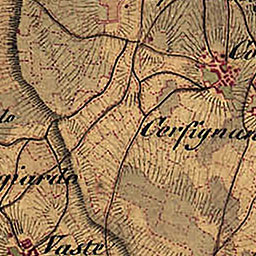 Co
to
Cerfignan
giardo
Vaste